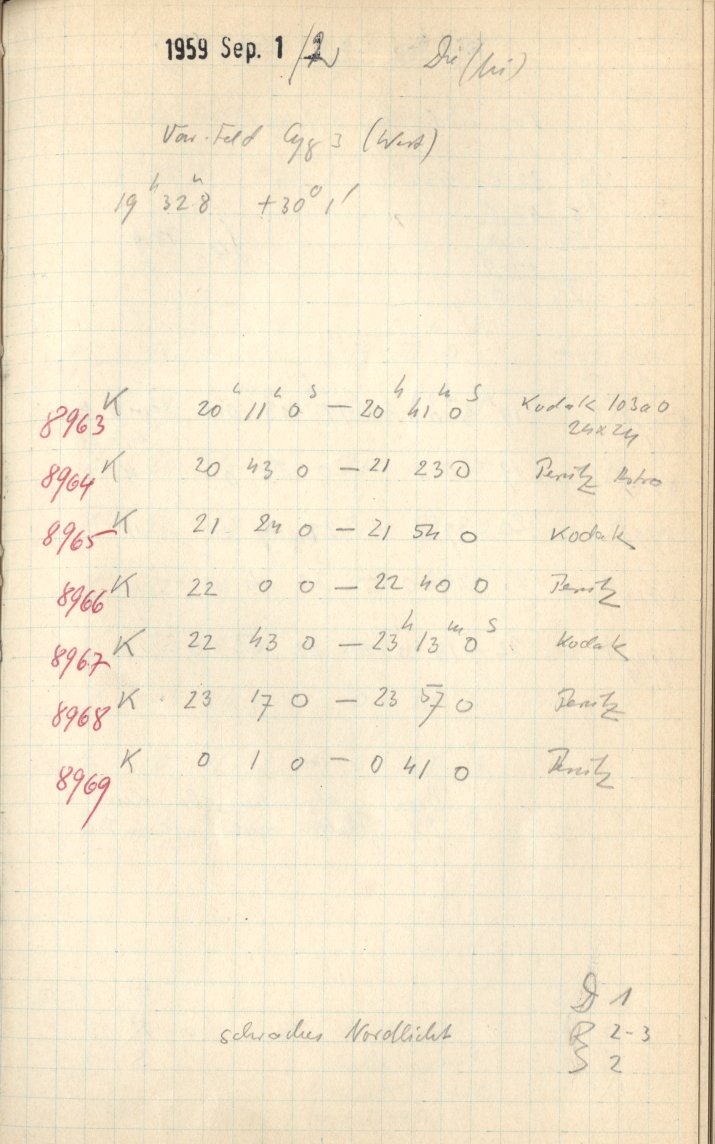 1959 Sep. 1/2 Die(Mi)
Var. Feld Cyg 3 (West)
19ʰ 32ᵐ8 +30° 1'
8963 K 20ʰ 11ᵐ 0ˢ — 20ʰ 41ᵐ 0ˢ Kodak 103a0
24x24
8964 K 20 43 0 — 21 23 0 Perutz Astro
8965 K 21 24 0 — 21 54 0 Kodak
8966 K 22 0 0 — 22 40 0 Perutz
8967 K 22 43 0 — 23ʰ 13ᵐ 0ˢ Kodak
8968 K 23 17 0 — 23 57 0 Perutz
8969 K 0 1 0 — 0 41 0 Perutz
D 1
schwaches Nordlicht R 2-3
S 2